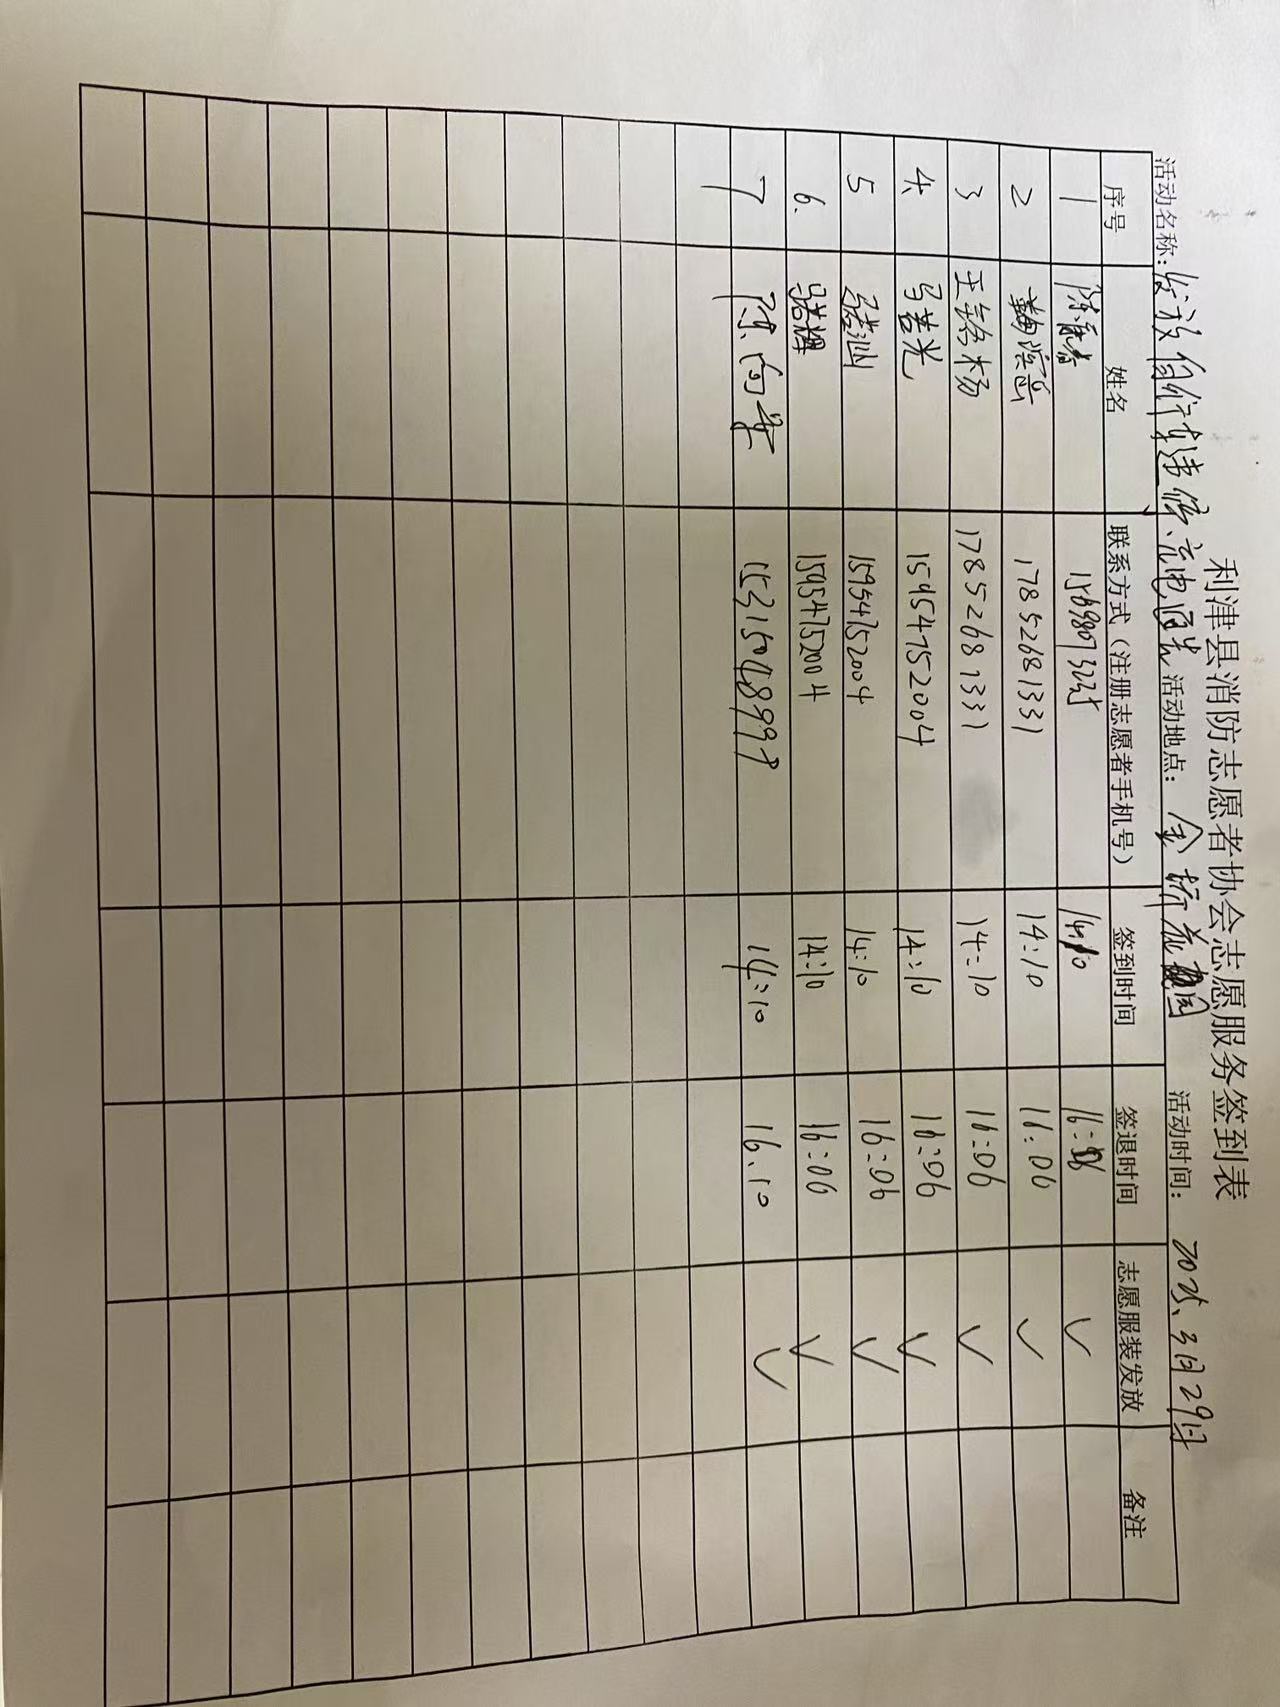 利津县消防志愿者协会志愿服务签到表
活动名称：发放自行车 充电 活动地点：金桥花园 活动时间：2025、3月29日
序号 姓名 联系方式（注册志愿者手机号） 签到时间 签退时间 志愿服装发放 备注
1 14:10 16:06 ✓
2 17852681331 14:10 16:06 ✓
3 王铭杨 17852681331 14:10 16:06 ✓
4、 马若光 15954752004 14:10 16:06 ✓
5 15954752004 14:10 16:06 ✓
6. 15954752004 14:10 16:06 ✓
7 陈向 14:10 16.10 ✓